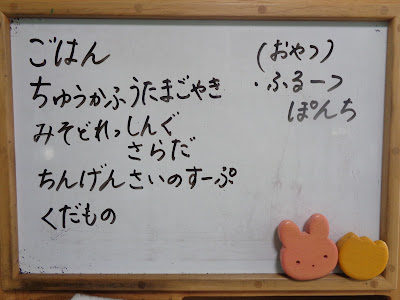 ごはん
ちゅうかふうたまごやき
みそどれっしんぐ
さらだ
ちんげんさいのすーぷ
くだもの
(おやつ)
・ふるーつ
ぽんち